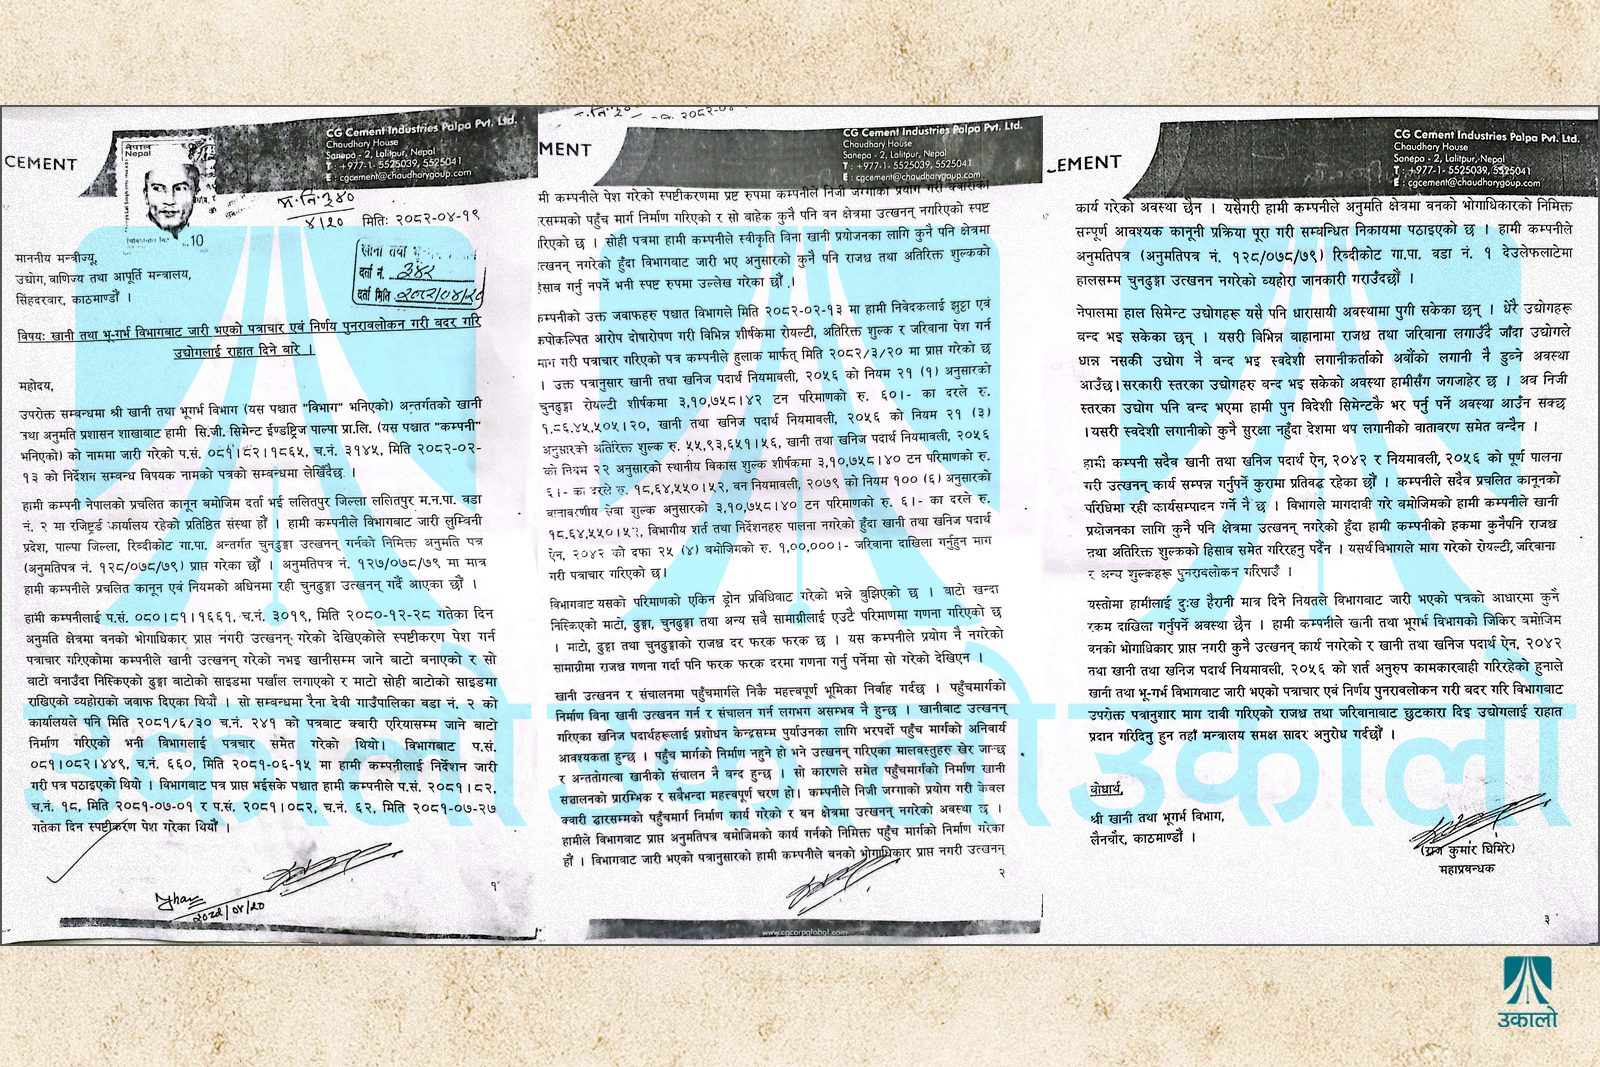 CEMENT
CG Cement Industries Palpa Pvt. Ltd.
Chaudhary House
Sanepa - 2, Lalitpur, Nepal
T : +977-1- 5525039, 5525041
E : cgcement@chaudharygoup.com
नेपाल
Nepal
10
मिति: २०८२-०४-१९
माननीय मन्त्रीज्यू,
उद्योग, वाणिज्य तथा आपूर्ति मन्त्रालय,
सिंहदरवार, काठमाण्डौं ।
खानी तथा
दर्ता नं. ३४२
दर्ता मिति २०८२/०४/२०
विषय: खानी तथा भू-गर्भ विभागबाट जारी भएको पत्राचार एवं निर्णय पुनरावलोकन गरी बदर गरि
उद्योगलाई राहात दिने बारे ।
महोदय,
उपरोक्त सम्बन्धमा श्री खानी तथा भूगर्भ विभाग (यस पश्चात "विभाग" भनिएको) अन्तर्गतको खानी
तथा अनुमति प्रशासन शाखाबाट हामी सि.जी. सिमेन्ट ईण्डष्ट्रिज पाल्पा प्रा.लि. (यस पश्चात "कम्पनी"
भनिएको) को नाममा जारी गरेको प.सं. ०८१।८२।१८६५, च.नं. ३१४५, मिति २०८२-०२-
१३ को निर्देशन सम्बन्ध विषयक नामको पत्रको सम्बन्धमा लेखिँदैछ ।
हामी कम्पनी नेपालको प्रचलित कानून बमोजिम दर्ता भई ललितपुर जिल्ला ललितपुर म.न.पा. वडा
नं. २ मा रजिष्टर्ड कार्यालय रहेको प्रतिष्ठित संस्था हौं । हामी कम्पनीले विभागबाट जारी लुम्विनी
प्रदेश, पाल्पा जिल्ला, रिब्दीकोट गा.पा. अन्तर्गत चुनढुङ्गा उत्खनन् गर्नको निमित्त अनुमति पत्र
(अनुमतिपत्र नं. १२८/०७८/७९) प्राप्त गरेका छौं । अनुमतिपत्र नं. १२७/०७८/७९ मा मात्र
हामी कम्पनीले प्रचलित कानून एवं नियमको अधिनमा रही चुनढुङ्गा उत्खनन् गर्दै आएका छौं ।
हामी कम्पनीलाई प.सं. ०८०।८१।१६६१, च.नं. ३०१९, मिति २०८०-१२-२८ गतेका दिन
अनुमति क्षेत्रमा वनको भोगाधिकार प्राप्त नगरी उत्खनन् गरेको देखिएकोले स्पष्टीकरण पेश गर्न
पत्राचार गरिएकोमा कम्पनीले खानी उत्खनन् गरेको नभइ खानीसम्म जाने बाटो बनाएको र सो
बाटो बनाउँदा निस्किएको ढुङ्गा बाटोको साइडमा पर्खाल लगाएको र माटो सोही बाटोको साइडमा
राखिएको व्यहोराको जवाफ दिएका थियौं । सो सम्बन्धमा रैना देवी गाउँपालिका वडा नं. २ को
कार्यालयले पनि मिति २०८१/६/३० च.नं. २४१ को पत्रबाट क्वारी एरियासम्म जाने बाटो
निर्माण गरिएको भनी विभागलाई पत्रचार समेत गरेको थियो। विभागबाट प.सं.
०८१।०८२।४४९, च.नं. ६६०, मिति २०८१-०६-१५ मा हामी कम्पनीलाई निर्देशन जारी
गरी पत्र पठाइएको थियो । विभागबाट पत्र प्राप्त भईसके पश्चात हामी कम्पनीले प.सं. २०८१।८२,
च.नं. १८, मिति २०८१-०७-०१ र प.सं. २०८१।०८२, च.नं. ६२, मिति २०८१-०७-२७
गतेका दिन स्पष्टीकरण पेश गरेका थियौं ।
२०८२/०४/२०
१
MENT
CG Cement Industries Palpa Pvt. Ltd.
Chaudhary House
Sanepa - 2, Lalitpur, Nepal
T : +977-1- 5525039, 5525041
E : cgcement@chaudharygoup.com
मी कम्पनीले पेश गरेको स्पष्टीकरणमा प्रष्ट रुपमा कम्पनीले निजी जग्गाको प्रयोग गरी क्वारीको
रसम्मको पहुँच मार्ग निर्माण गरिएको र सो बाहेक कुनै पनि वन क्षेत्रमा उत्खनन् नगरिएको स्पष्ट
रिएको छ । सोही पत्रमा हामी कम्पनीले स्वीकृति विना खानी प्रयोजनका लागि कुनै पनि क्षेत्रमा
त्खनन् नगरेको हुँदा विभागबाट जारी भए अनुसारको कुनै पनि राजश्व तथा अतिरिक्त शुल्कको
हिसाव गर्नु नपर्ने भनी स्पष्ट रुपमा उल्लेख गरेका छौं ।
कम्पनीको उक्त जवाफहरु पश्चात विभागले मिति २०८२-०२-१३ मा हामी निवेदकलाई झुट्ठा एवं
कपोकल्पित आरोप दोषारोपण गरी विभिन्न शीर्षकमा रोयल्टी, अतिरिक्त शुल्क र जरिवाना पेश गर्न
माग गरी पत्राचार गरिएको पत्र कम्पनीले हुलाक मार्फत् मिति २०८२/३/२० मा प्राप्त गरेको छ
। उक्त पत्रानुसार खानी तथा खनिज पदार्थ नियमावली, २०५६ को नियम २१ (१) अनुसारको
चुनढुङ्गा रोयल्टी शीर्षकमा ३,१०,७५८।४२ टन परिमाणको रु. ६०।- का दरले रु.
१,८६,४५,५०५।२०, खानी तथा खनिज पदार्थ नियमावली, २०५६ को नियम २१ (३)
अनुसारको अतिरिक्त शुल्क रु. ५५,९३,६५१।५६, खानी तथा खनिज पदार्थ नियमावली, २०५६
को नियम २२ अनुसारको स्थानीय विकास शुल्क शीर्षकमा ३,१०,७५८।४० टन परिमाणको रु.
६।- का दरले रु. १८,६४,५५०।५२, वन नियमावली, २०७९ को नियम १०० (६) अनुसारको
वातावरणीय सेवा शुल्क अनुसारको ३,१०,७५८।४० टन परिमाणको रु. ६।- का दरले रु.
१८,६४,५५०।५२, विभागीय शर्त तथा निर्देशनहरु पालना नगरेको हुँदा खानी तथा खनिज पदार्थ
ऐन, २०४२ को दफा २५ (४) बमोजिमको रु. १,००,०००।- जरिवाना दाखिला गर्नुहुन माग
गरी पत्राचार गरिएको छ।
विभागबाट यसको परिमाणको एकिन ड्रोन प्रविधिवाट गरेको भन्ने बुझिएको छ । वाटो खन्दा
निस्किएको माटो, ढुङ्गा, चुनढुङ्गा तथा अन्य सबै सामाग्रीलाई एउटै परिमाणमा गणना गरिएको छ
। माटो, ढुङ्गा तथा चुनढुङ्गाको राजश्व दर फरक फरक छ । यस कम्पनीले प्रयोग नै नगरेको
सामाग्रीमा राजश्व गणना गर्दा पनि फरक फरक दरमा गणना गर्नु पर्नेमा सो गरेको देखिएन ।
खानी उत्खनन र संचालनमा पहुँचमार्गले निकै महत्त्वपूर्ण भूमिका निर्वाह गर्दछ । पहुँचमार्गको
निर्माण विना खानी उत्खनन गर्न र संचालन गर्न लगभग असम्भव नै हुन्छ । खानीबाट उत्खनन्
गरिएका खनिज पदार्थहरूलाई प्रशोधन केन्द्रसम्म पुर्याउनका लागि भरपर्दो पहुँच मार्गको अनिवार्य
आवश्यकता हुन्छ । पहुँच मार्गको निर्माण नहुने हो भने उत्खनन् गरिएका मालवस्तुहरु खेर जान्छ
र अन्ततोगत्वा खानीको संचालन नै वन्द हुन्छ । सो कारणले समेत पहुँचमार्गको निर्माण खानी
सञ्चालनको प्रारम्भिक र सवैभन्दा महत्वपूर्ण चरण हो। कम्पनीले निजी जग्गाको प्रयोग गरी केवल
क्वारी द्वारसम्मको पहुँचमार्ग निर्माण कार्य गरेको र वन क्षेत्रमा उत्खनन् नगरेको अवस्था छ ।
हामीले विभागबाट प्राप्त अनुमतिपत्र बमोजिमको कार्य गर्नको निमित्त पहुँच मार्गको निर्माण गरेका
हौं । विभागबाट जारी भएको पत्रानुसारको हामी कम्पनीले वनको भोगाधिकार प्राप्त नगरी उत्खनन्
२
www.cgcorpglobal.com
CEMENT
CG Cement Industries Palpa Pvt. Ltd.
Chaudhary House
Sanepa - 2, Lalitpur, Nepal
T : +977-1- 5525039, 5525041
E : cgcement@chaudharygoup.com
कार्य गरेको अवस्था छैन । यसैगरी हामी कम्पनीले अनुमति क्षेत्रमा वनको भोगाधिकारको निमित्त
सम्पूर्ण आवश्यक कानूनी प्रक्रिया पूरा गरी सम्वन्धित निकायमा पठाइएको छ । हामी कम्पनीले
अनुमतिपत्र (अनुमतिपत्र नं. १२८/०७८/७९) रिब्दीकोट गा.पा. वडा नं. १ देउलेफलाटेमा
हालसम्म चुनढुङ्गा उत्खनन नगरेको व्यहोरा जानकारी गराउँदछौं ।
नेपालमा हाल सिमेन्ट उद्योगहरू यसै पनि धारासायी अवस्थामा पुगी सकेका छन् । धेरै उद्योगहरू
वन्द भइ सकेका छन् । यसरी विभिन्न वाहानामा राजश्व तथा जरिवाना लगाउँदै जाँदा उद्योगले
धान्न नसकी उद्योग नै वन्द भइ स्वदेशी लगानीकर्ताको अर्वौको लगानी नै डुब्ने अवस्था
आउँछ। सरकारी स्तरका उद्योगहरु वन्द भइ सकेको अवस्था हामीसँग जगजाहेर छ । अव निजी
स्तरका उद्योग पनि वन्द भएमा हामी पुन विदेशी सिमेन्टकै भर पर्नु पर्ने अवस्था आउँन सक्छ
।यसरी स्वदेशी लगानीको कुनै सुरक्षा नहुँदा देशमा थप लगानीको वातावरण समेत वन्दैन ।
हामी कम्पनी सदैव खानी तथा खनिज पदार्थ ऐन, २०४२ र नियमावली, २०५६ को पूर्ण पालना
गरी उत्खनन् कार्य सम्पन्न गर्नुपर्ने कुरामा प्रतिवद्ध रहेका छौं । कम्पनीले सदैव प्रचलित कानूनको
परिधिमा रही कार्यसम्पादन गर्ने नै छ । विभागले मागदावी गरे बमोजिमको हामी कम्पनीले खानी
प्रयोजनका लागि कुनै पनि क्षेत्रमा उत्खनन् नगरेको हुँदा हामी कम्पनीको हकमा कुनैपनि राजश्व
तथा अतिरिक्त शुल्कको हिसाब समेत गरिरहनु पर्दैन । यसर्थ विभागले माग गरेको रोयल्टी, जरिवाना
र अन्य शुल्कहरू पुनरावलोकन गरिपाउँ ।
यस्तोमा हामीलाई दुःख हैरानी मात्र दिने नियतले विभागबाट जारी भएको पत्रको आधारमा कुनै
रकम दाखिला गर्नुपर्ने अवस्था छैन । हामी कम्पनीले खानी तथा भूगर्भ विभागको जिकिर बमोजिम
वनको भोगाधिकार प्राप्त नगरी कुनै उत्खनन् कार्य नगरेको र खानी तथा खनिज पदार्थ ऐन, २०४२
तथा खानी तथा खनिज पदार्थ नियमावली, २०५६ को शर्त अनुरुप कामकारवाही गरिरहेको हुनाले
खानी तथा भू-गर्भ विभागबाट जारी भएको पत्राचार एवं निर्णय पुनरावलोकन गरी बदर गरि विभागबाट
उपरोक्त पत्रानुशार माग दावी गरिएको राजश्व तथा जरिवानाबाट छुटकारा दिइ उद्योगलाई राहात
प्रदान गरिदिनु हुन तहाँ मन्त्रालय समक्ष सादर अनुरोध गर्दछौं ।
वोधार्थ,
श्री खानी तथा भूगर्भ विभाग,
लैनचौर, काठमाण्डौं ।
(राज कुमार घिमिरे)
महाप्रबन्धक
३
उकालो